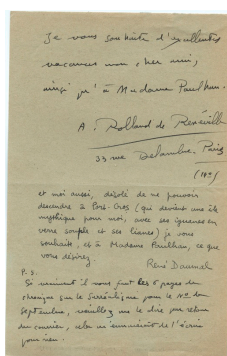 Je vous souhaite d'excellentes
vacances mon cher ami,
ainsi qu'à Madame Paulhan.
A. Rolland de Renéville
33 rue Delambre. Paris
(14e)
et moi aussi, désolé de ne pouvoir
descendre à Port-Cros (qui devient une île
mythique pour moi, avec ses iguanes en
verre souple et ses lianes) je vous
souhaite, et à Madame Paulhan, ce que
vous désirez
René Daumal
P.S.
Si vraiment il vous faut les 6 pages de
chronique sur le Surréalisme pour le No de
septembre, veuillez me le dire par retour
du courrier, cela
pour rien.